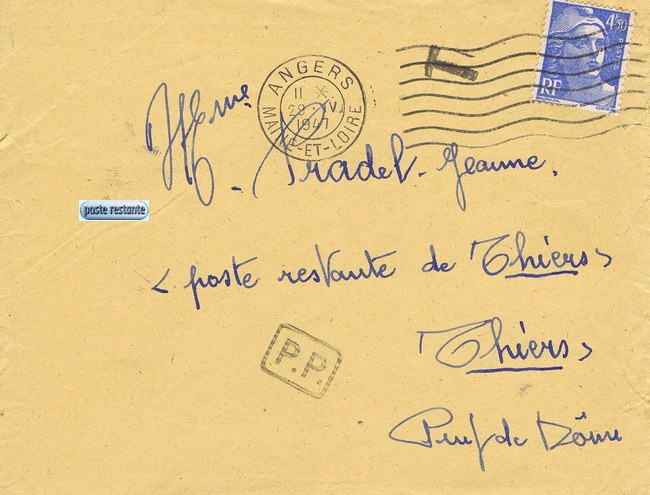 4f50
RF
T
ANGERS
11 *
29 IV
1947
MAINE-ET-LOIRE
Mme
Pradel Jeanne,
poste restante
< poste restante de Thiers >
Thiers >
P.P.
Puy de Dôme